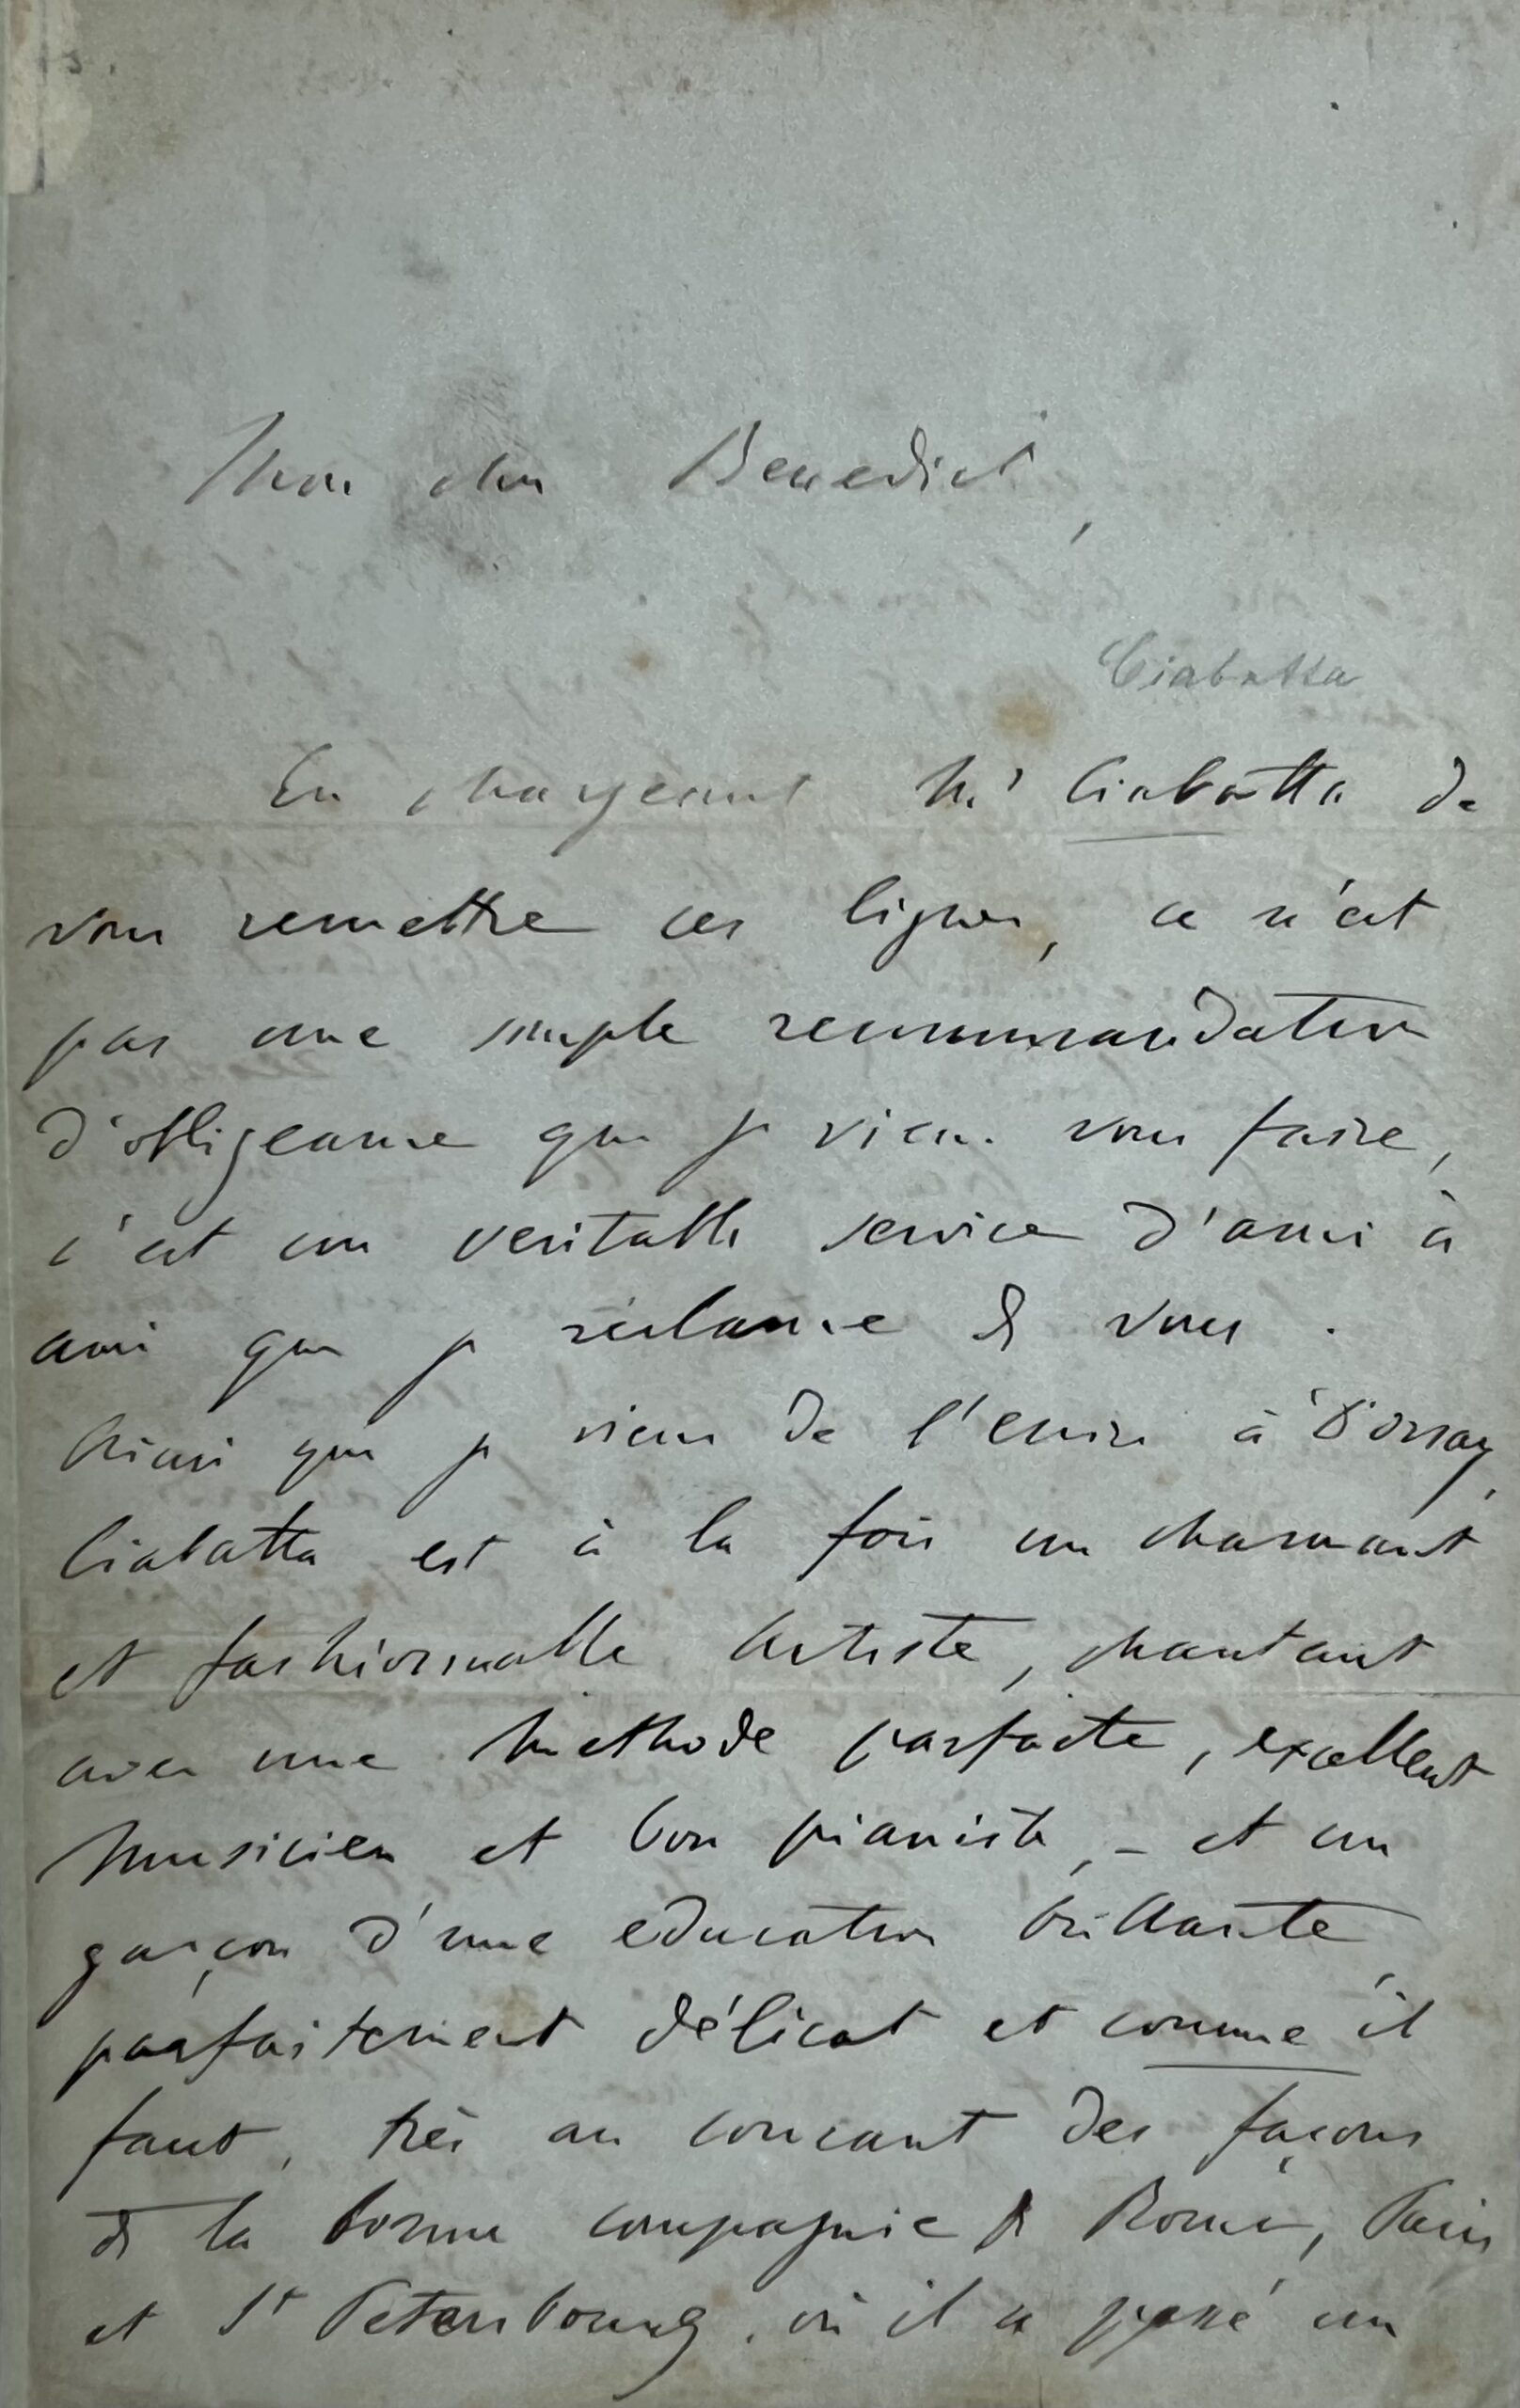 Mon cher Benedict,
Ciabatta
En chargeant Mr Ciabatta de
vous remettre ces lignes, ce n'est
pas une simple recommandation
d'obligeance que je viens vous faire,
c'est un veritable service d'ami à
ami que je réclame de vous.
Ainsi que je viens de l'écrire à D'orsay,
Ciabatta est à la fois un charmant
et fashionnable Artiste, chantant
avec une methode parfaite, excellent
musicien et bon pianiste, – et un
garçon d'une education brillante,
parfaitement délicat et comme il
faut, très au courant des façons
de la bonne compagnie de Rome, Paris
et St Petersbourg, où il a passé un